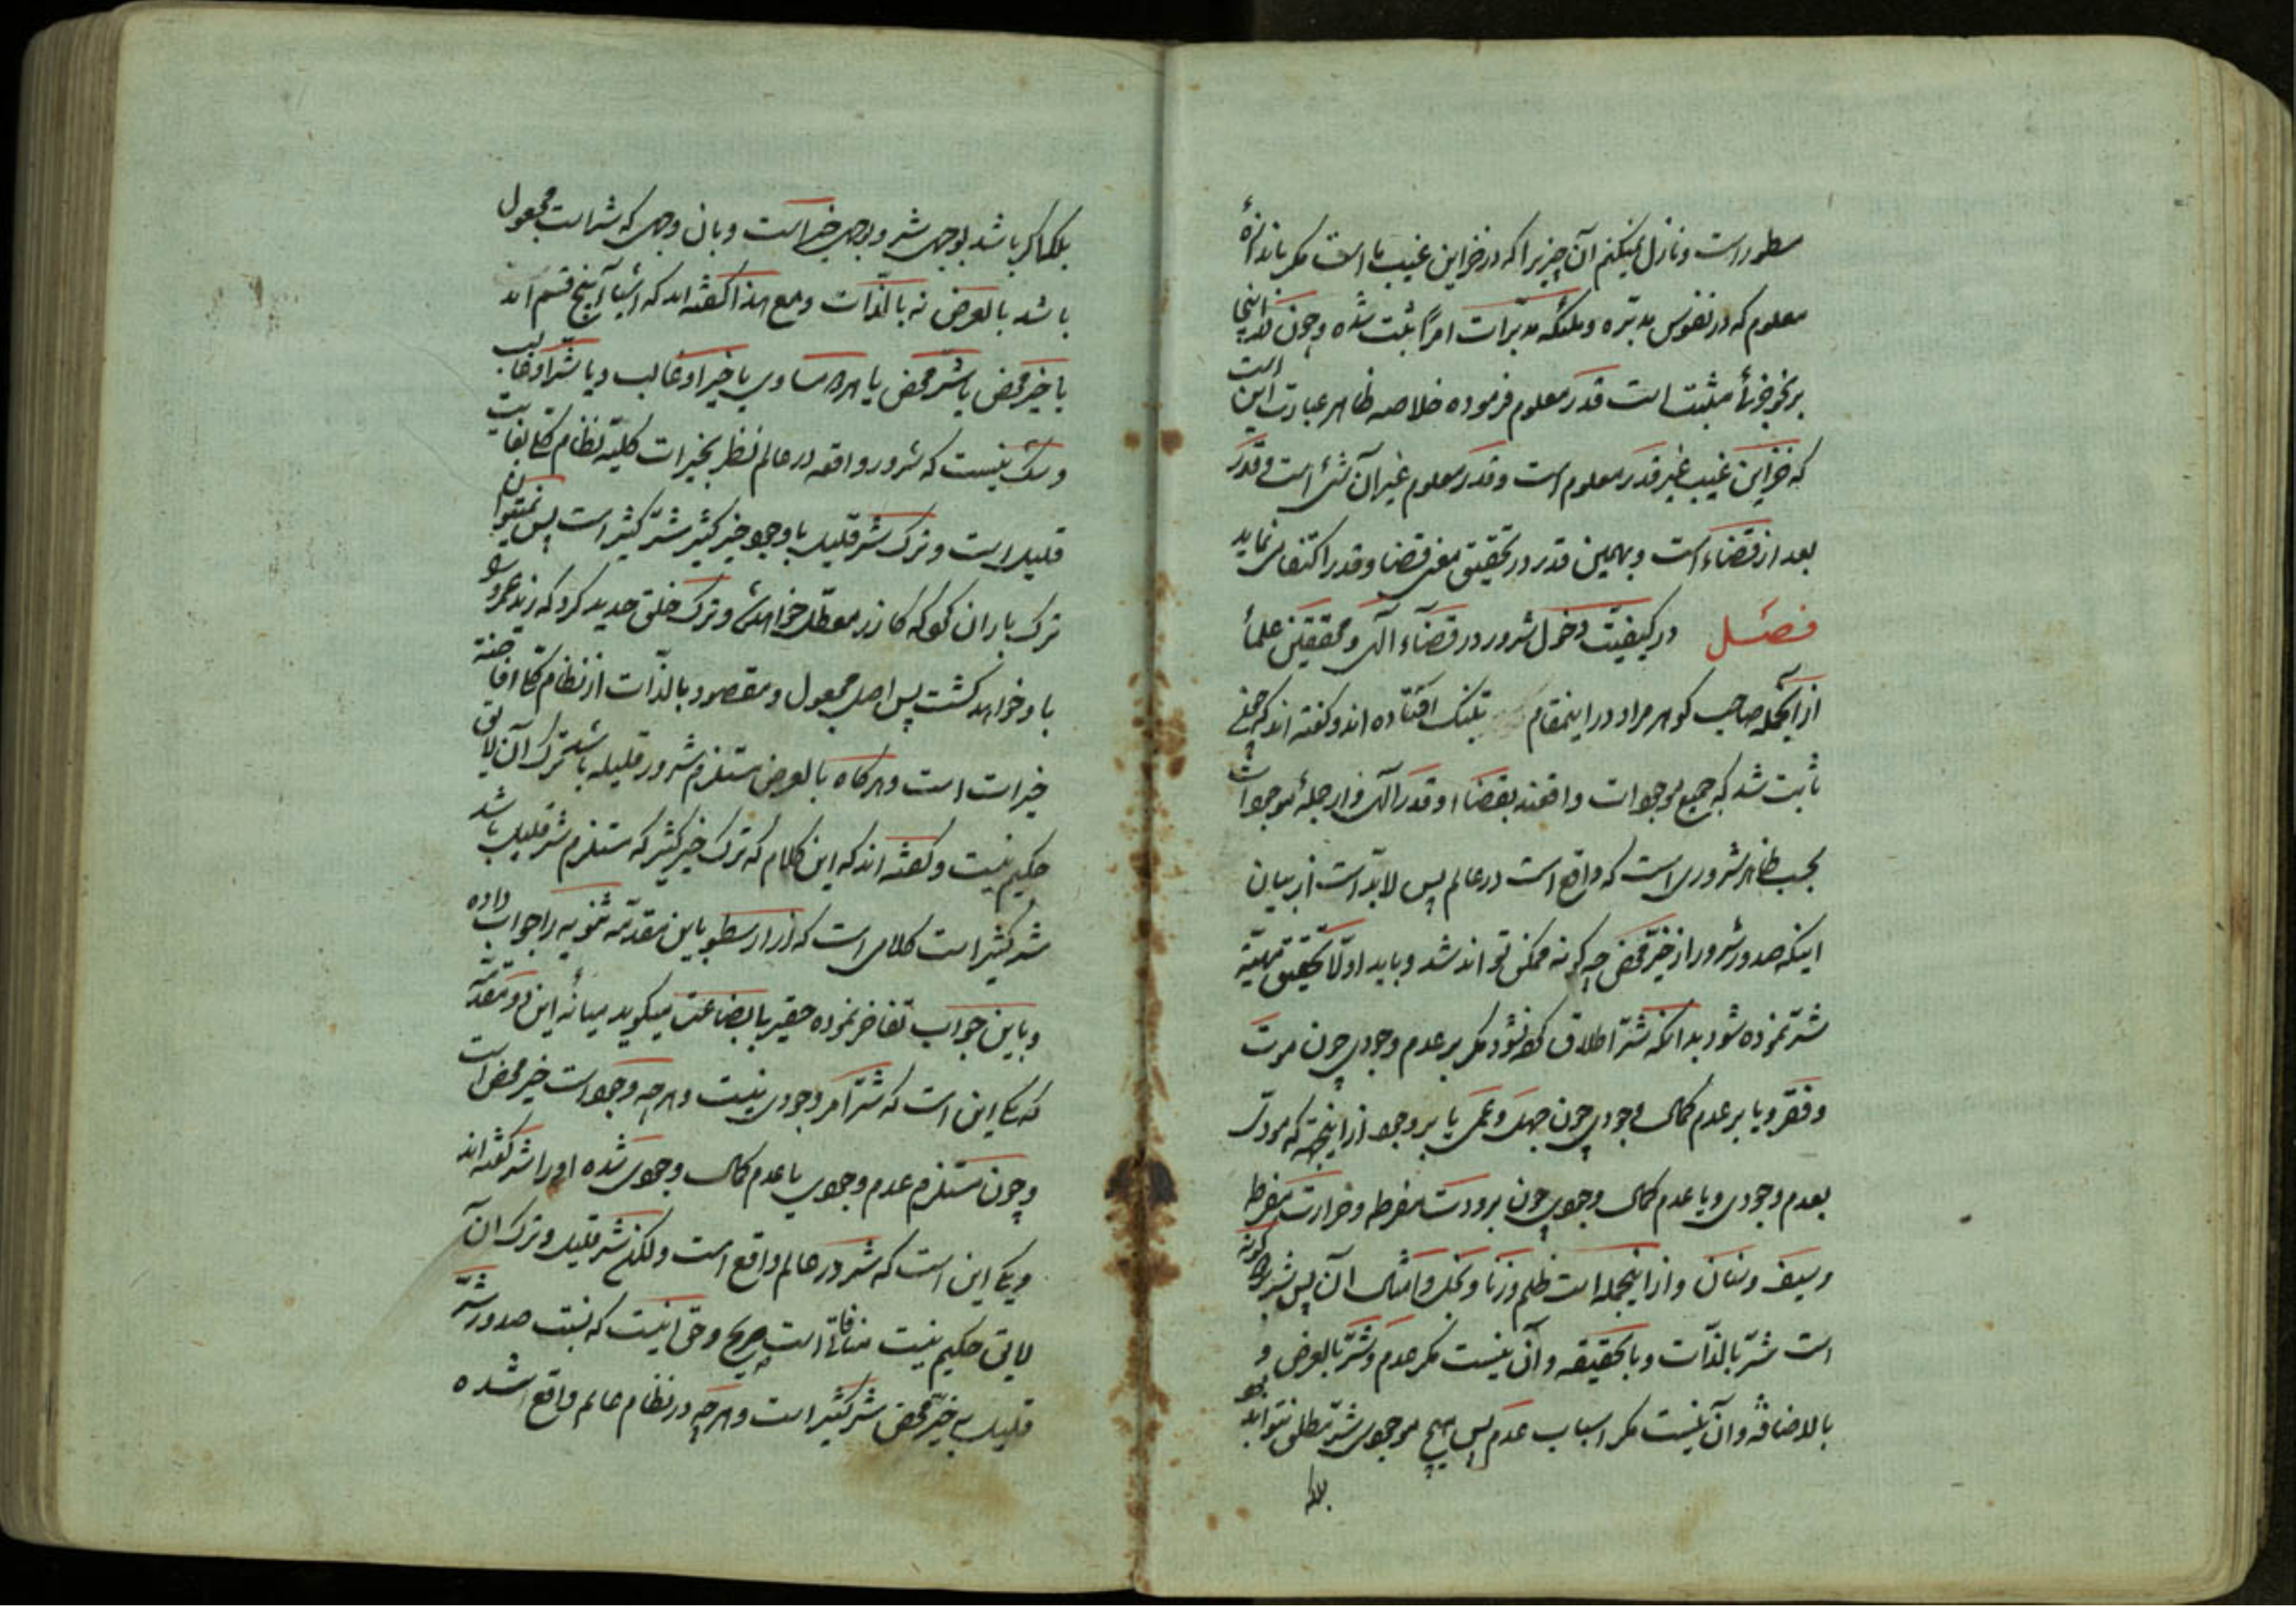 مسطور است و نازل نمیکنم آن چیز را که در خزاین غیب ما است مکر باندازهٔ
معلوم که در نفوس مدبّره و ملئکه مدبّرات امراً ثبت شده و چون در اینجا
بر نحو جزئی مثبت است قدر معلوم فرموده خلاصه ظاهر عبارت این است
که خزاین غیب غیر قدر معلوم است و قدر معلوم غیر آن شی است و قدر
بعد از قضاء است و بهمین قدر در تحقیق معنی قضا و قدر اکتفا می نماید
فصل در کیفیّت دخول شرور در قضاء الهی و محققین علمأ
از آنجمله صاحب کوهر مراد در اینمقام بتنک افتاده اند و کفته اند که چون
ثابت شد که جمیع موجودات واقعند بقضا و قدر الهی و از جملهٔ موجودات
بحسب ظاهر شروری است که واقع است در عالم پس لابدّ است از بیان
اینکه صدور شرور از خیر محض چه کونه ممکن تواند شد و باید اولا تحقیق مهیّة
شرّ نموده شود بدانکه شرّ اطلاق کرده نشود مکر بر عدم وجودی چون موت
و فقر و یا بر عدم کمال وجودی چون جهل و عمی یا بر وجود از اینجهة که مودی
بعدم وجودی و یا عدم کمال وجودی چون برودت مفرطه و حرارت مفرطه
و سیف و سنان و از اینجمله است ظلم و زنا و بخل و امثال آن پس شر بر دو کونه
است شرّ بالذّات و بالحقیقه و آن نیست مکر عدم و شرّ بالعرض و
بالاضافه و آن نیست مکر اسباب عدم پس هیچ موجودی شرّ مطلق نتواند بود
بلکه
بلکه اکر باشد بوجهی شر و بوجهی خیر است و بان وجهی که شر است مجعول
باشد بالعرض نه بالذّات و مع هذا کفته اند که اشیا پنج قسم اند
یا خیر محض یا شرّ محض یا هر دو مساوی یا خیر او غالب و یا شرّ او غالب
و شک نیست که شرور واقعه در عالم نظر بخیرات کلیّه نظام کل بغایت
قلیل است و ترک شرّ قلیل با وجود خیر کثیر شرّ کثیر است پس نمیتوان
ترک باران کرد که کازر معطّل خواهد شد و ترک خلق حدید کرد که زید مجروح
باو خواهد کشت پس اصل مجعول و مقصود بالذّات از نظام کل افاضهٔ
خیرات است و هرکاه بالعرض مستلزم شرور قلیله باشد ترک آن لایق
حکیم نیست و کفته اند که این کلام که ترک خیر کثیر که مستلزم شرّ قلیل باشد
شر کثیر است کلامی است که ارسطو باین مقدّمه ثنویه را جواب داده
و باین جواب تفاخر نموده حقیر با بضاعت میکوید میانهٔ این دو مقدّمه
که یکی این است که شرّ امر وجودی نیست و هر چه وجود است خیر محض است
و چون مستلزم عدم وجودی یا عدم کمال وجودی شده او را شر کفته اند
و یکی این است که شر در عالم واقع است و لکن شرّ قلیل و ترک آن
لایق حکیم نیست منافاة است صریح و حق اینست که نسبت صدور شرّ
قلیل به خیر محض شرّ کثیر است و هر چه در نظام عالم واقع شده